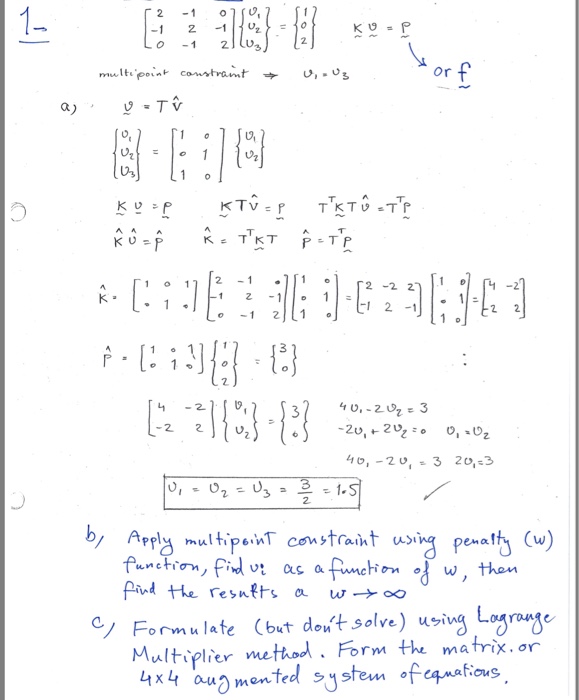 1- [2 -1 0; -1 2 -1; 0 -1 2] {υ₁; υ₂; υ₃} = {1; 0; 2} K υ = P
or f
multipoint constraint → υ₁ = υ₃
a) υ = T V̂
{υ₁; υ₂; υ₃} = [1 0; 0 1; 1 0] {υ₁; υ₂}
K υ = P K T υ̂ = P TᵀK T υ̂ = TᵀP
K̂ υ̂ = P̂ K̂ = TᵀK T P̂ = TᵀP
K̂ = [1 0 1; 0 1 0] [2 -1 0; -1 2 -1; 0 -1 2] [1 0; 0 1; 1 0] = [2 -2 2; -1 2 -1] [1 0; 0 1; 1 0] = [4 -2; -2 2]
P̂ = [1 0 1; 0 1 0] {1; 0; 2} = {3; 0} :
[4 -2; -2 2] {υ₁; υ₂} = {3; 0} 4υ₁ - 2υ₂ = 3
-2υ₁ + 2υ₂ = 0 υ₁ = υ₂
4υ₁ - 2υ₁ = 3 2υ₁ = 3
υ₁ = υ₂ = υ₃ = 3/2 = 1.5 ✓
b, Apply multipoint constraint using penalty (w)
function, find υi as a function of w, then
find the results a w → ∞
c, Formulate (but don't solve) using Lagrange
Multiplier method. Form the matrix. or
4x4 augmented system of equations.